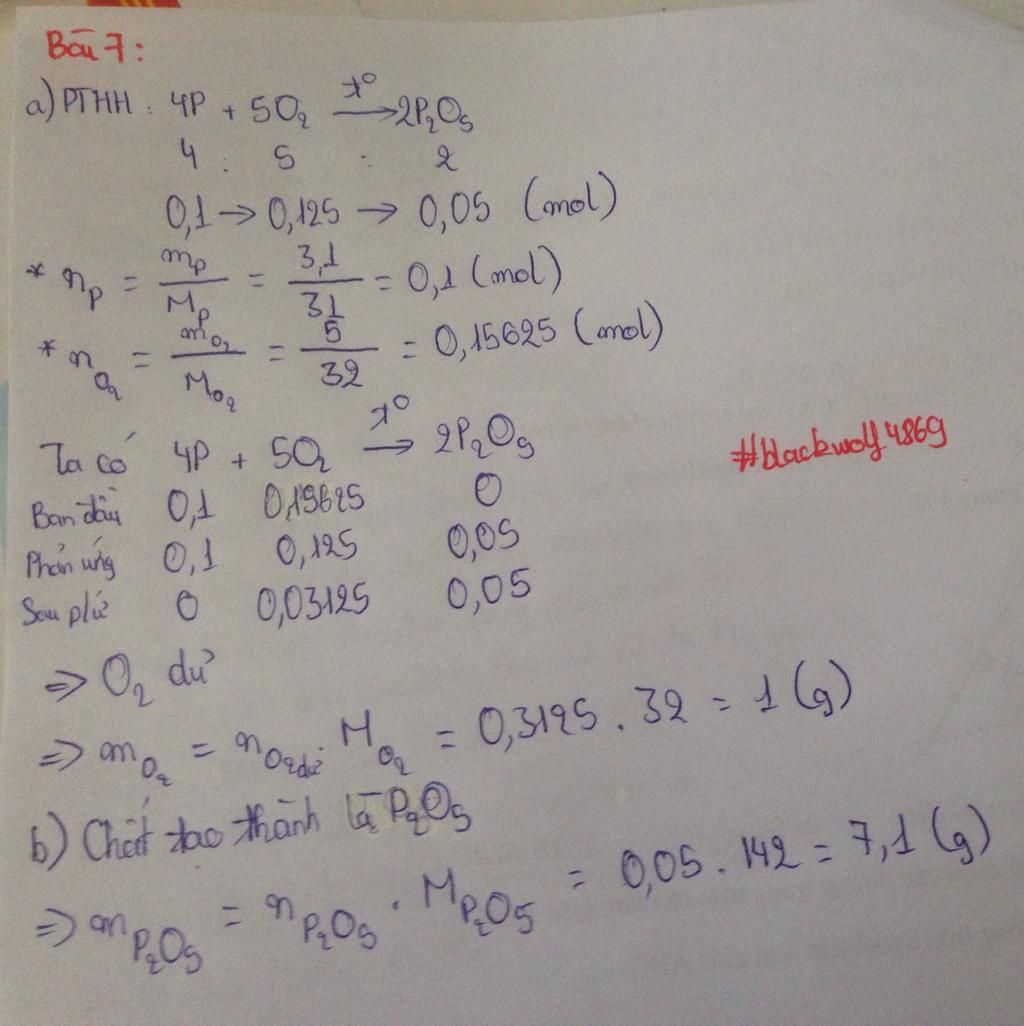 Bài 7:
a) PTHH: 4P + 5O₂ →(t°) 2P₂O₅
4 : 5 : 2
0,1 → 0,125 → 0,05 (mol)
* nₚ = mₚ/Mₚ = 3,1/31 = 0,1 (mol)
* n_O₂ = m_O₂/M_O₂ = 5/32 = 0,15625 (mol)
Ta có 4P + 5O₂ →(t°) 2P₂O₅
Ban đầu 0,1 0,15625 0
Phản ứng 0,1 0,125 0,05
Sau pứ 0 0,03125 0,05
⇒ O₂ dư
⇒ m_O₂ = n_O₂dư . M_O₂ = 0,3125 . 32 = 1 (g)
b) Chất tạo thành là P₂O₅
⇒ m_P₂O₅ = n_P₂O₅ . M_P₂O₅ = 0,05 . 142 = 7,1 (g)
#blackwolf4869